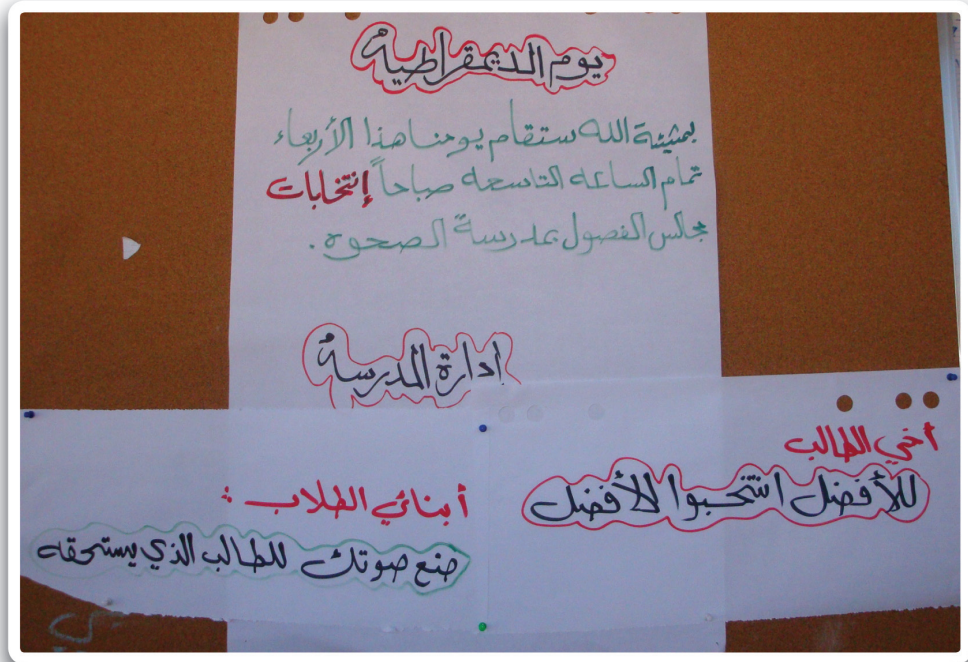 يوم الديمقراطية
بمشيئة الله ستقام يومنا هذا الأربعاء
تمام الساعه التاسعه صباحاً إنتخابات
مجالس الفصول بمدرسة الصحوه .
إدارة المدرسة
أخي الطالب
للأفضل انتخبوا الأفضل
أبنائي الطلاب :
ضع صوتك للطالب الذي يستحقه